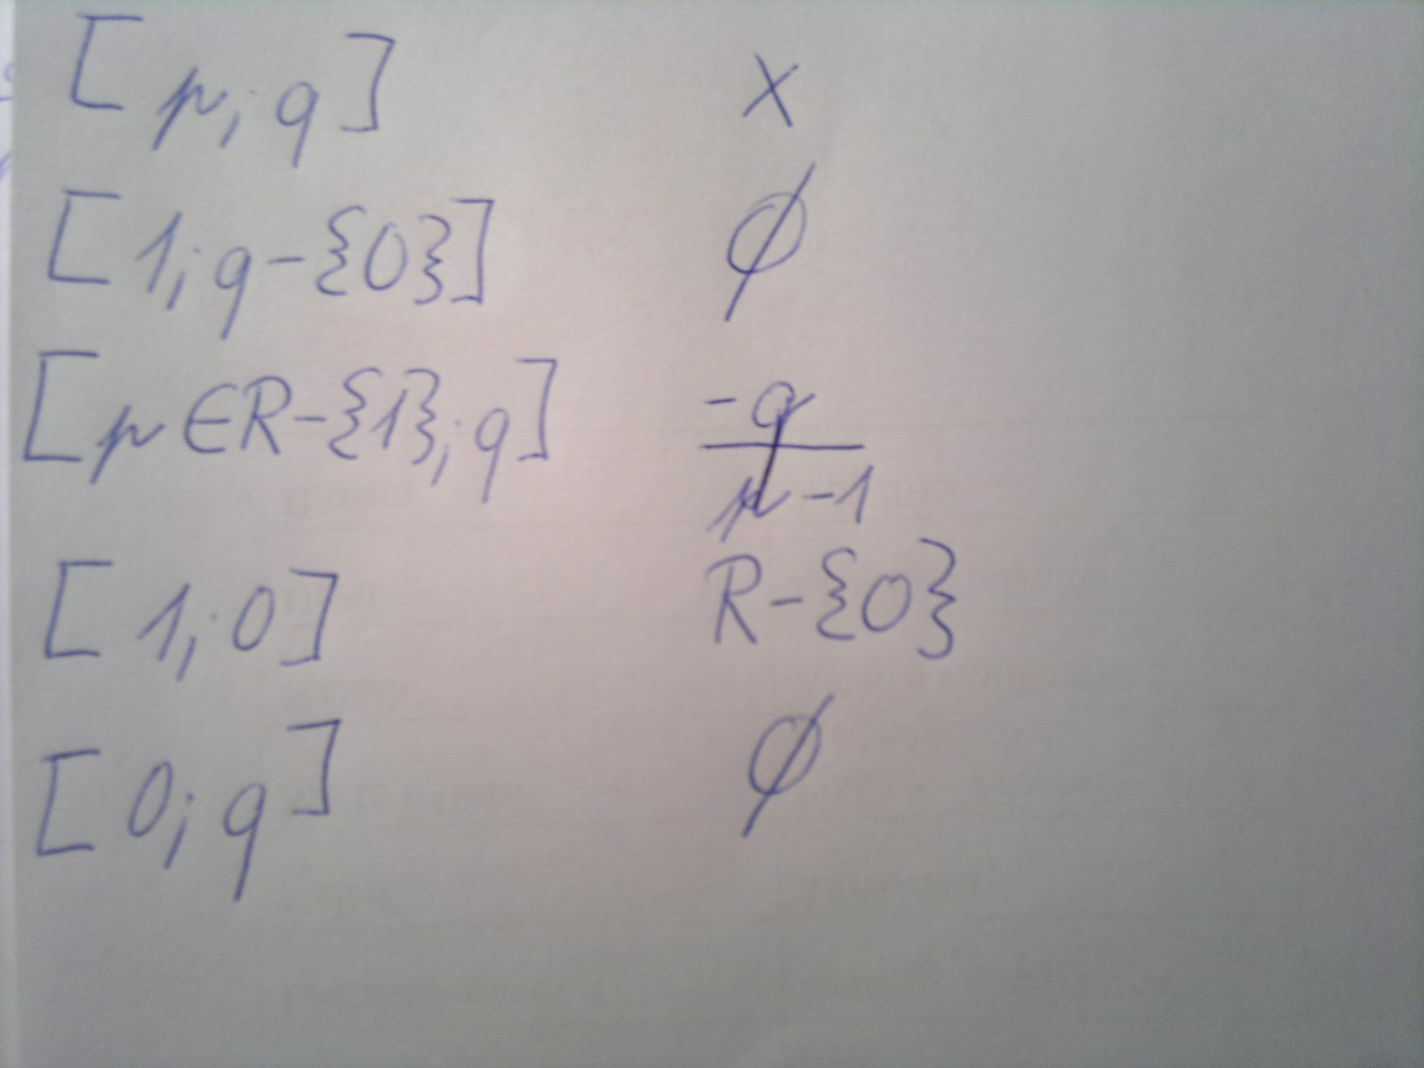 [p; q] x
[1; q-{0}] ∅
[p∈R-{1}; q] -q/p-1
[1; 0] R-{0}
[0; q] ∅